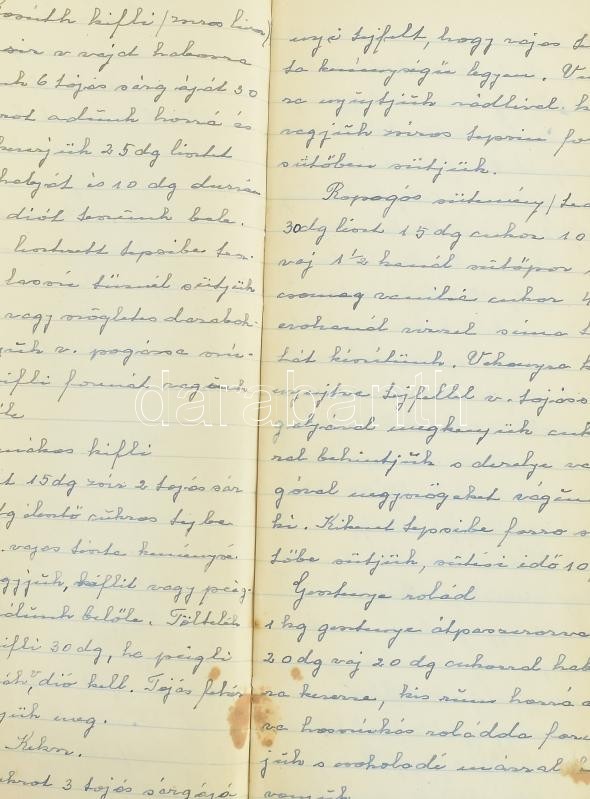 kifli /
zsir v vajd habosra
6 tojás sárgáját 30
rot adunk hozzá és
keverjük 25 dg lisztet
habját és 10 dg durván
diót teszünk bele.
lisztezett tepsibe tesz-
lassú tűznél sütjük
vagy szögletes darabok-
juk v. pogácsa szú-
kifli formát vagunk
le
mákos kifli
t 15 dg zsir 2 tojás sár
dg élesztő cukros tejbe
vajas tészta keménysé
kiflit vagy
belőle. Töltelék
ifli 30 dg, ha péigli
dió kell. Tojás fehér
jük meg.
krot 3 tojás sárgájá
nyi tejfelt, hogy vajas
ta keménységü legyen.
ra nyujtjuk rádlival
vagjuk zsiros tepsin
sütőben sütjük.
Ropogós sütemény /
30 dg liszt 15 dg cukor 10
vaj 1 1/2 kanál sütőpor
csomag vanilia cukor 4
evőkanál vizzel sima
tát készitünk. Vékonyra
nyujtva tejfellel v. tojás
megkenjük cuk
ral behintjük s derelye va
góval négyszögeket vágun
ki. Kikent tepsibe forro s
tőbe sütjük, sütési idő 10
Gesztenye rolád
1 kg gesztenye átpasszirozva
20 dg vaj 20 dg cukorral hab
ra keverve, kis rum hozzá
va hosszúkás roládda for
juk s csokoládé mázzal
vonjuk
darabanth